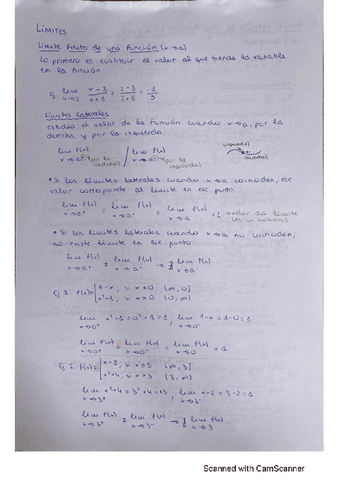 LÍMITES
Límite finito de una función (x→a)
Lo primero es sustituir el valor al que tiende la variable
en la función
Ej lim x→2 x-3/x+1 = 2-3/2+1 = -1/3
Límites laterales
estudio el valor de la función cuando x→a, por la
derecha y por la izquierda.
lim f(x) x→a⁺ (por la derecha) / lim f(x) x→a⁻ (por la izquierda)
• Si los límites laterales cuando x→a coinciden, ese
valor corresponde al límite en ese punto.
lim f(x) x→a⁺ = lim f(x) x→a⁻ = lim f(x) x→a = L →valor del límite
(es un número)
• Si los límites laterales cuando x→a no coinciden,
no existe límite en ese punto.
lim f(x) x→a⁺ ≠ lim f(x) x→a⁻ → ∄ lim f(x) x→a
Ej 1: f(x)= 1-x, si x≤0
x²+1, si x>0 (0,∞)
lim x→0⁺ x²+1 = 0²+1 = 1; lim x→0⁻ 1-x = 1-0 = 1
lim f(x) x→0⁺ = lim f(x) x→0⁻ = lim f(x) x→0 = 1
Ej 2: f(x)= x-2, si x≤3
x²+4, si x>3 (3,∞)
lim x→3⁺ x²+4 = 3²+4 = 13; lim x→3⁻ x-2 = 3-2 = 1
lim f(x) x→3⁺ ≠ lim f(x) x→3⁻ → ∄ lim f(x) x→3
Scanned with CamScanner